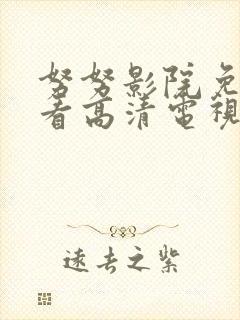 努努影院免
看高清電視
遠去之紫